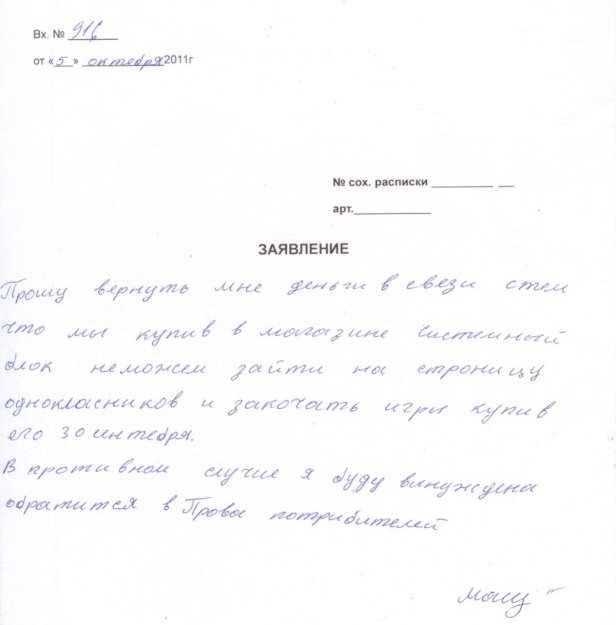 Вх. № 916
от «5» октября 2011г
№ сох. расписки __________ __
арт.____________
ЗАЯВЛЕНИЕ
Прошу вернуть мне деньги в свези стем
что мы купив в магазине системный
блок неможем зайти на строницу
однокласников и закочать игры купив
его 30 сентебря.
В противном случие я буду винуждена
обратится в Права потрибителей